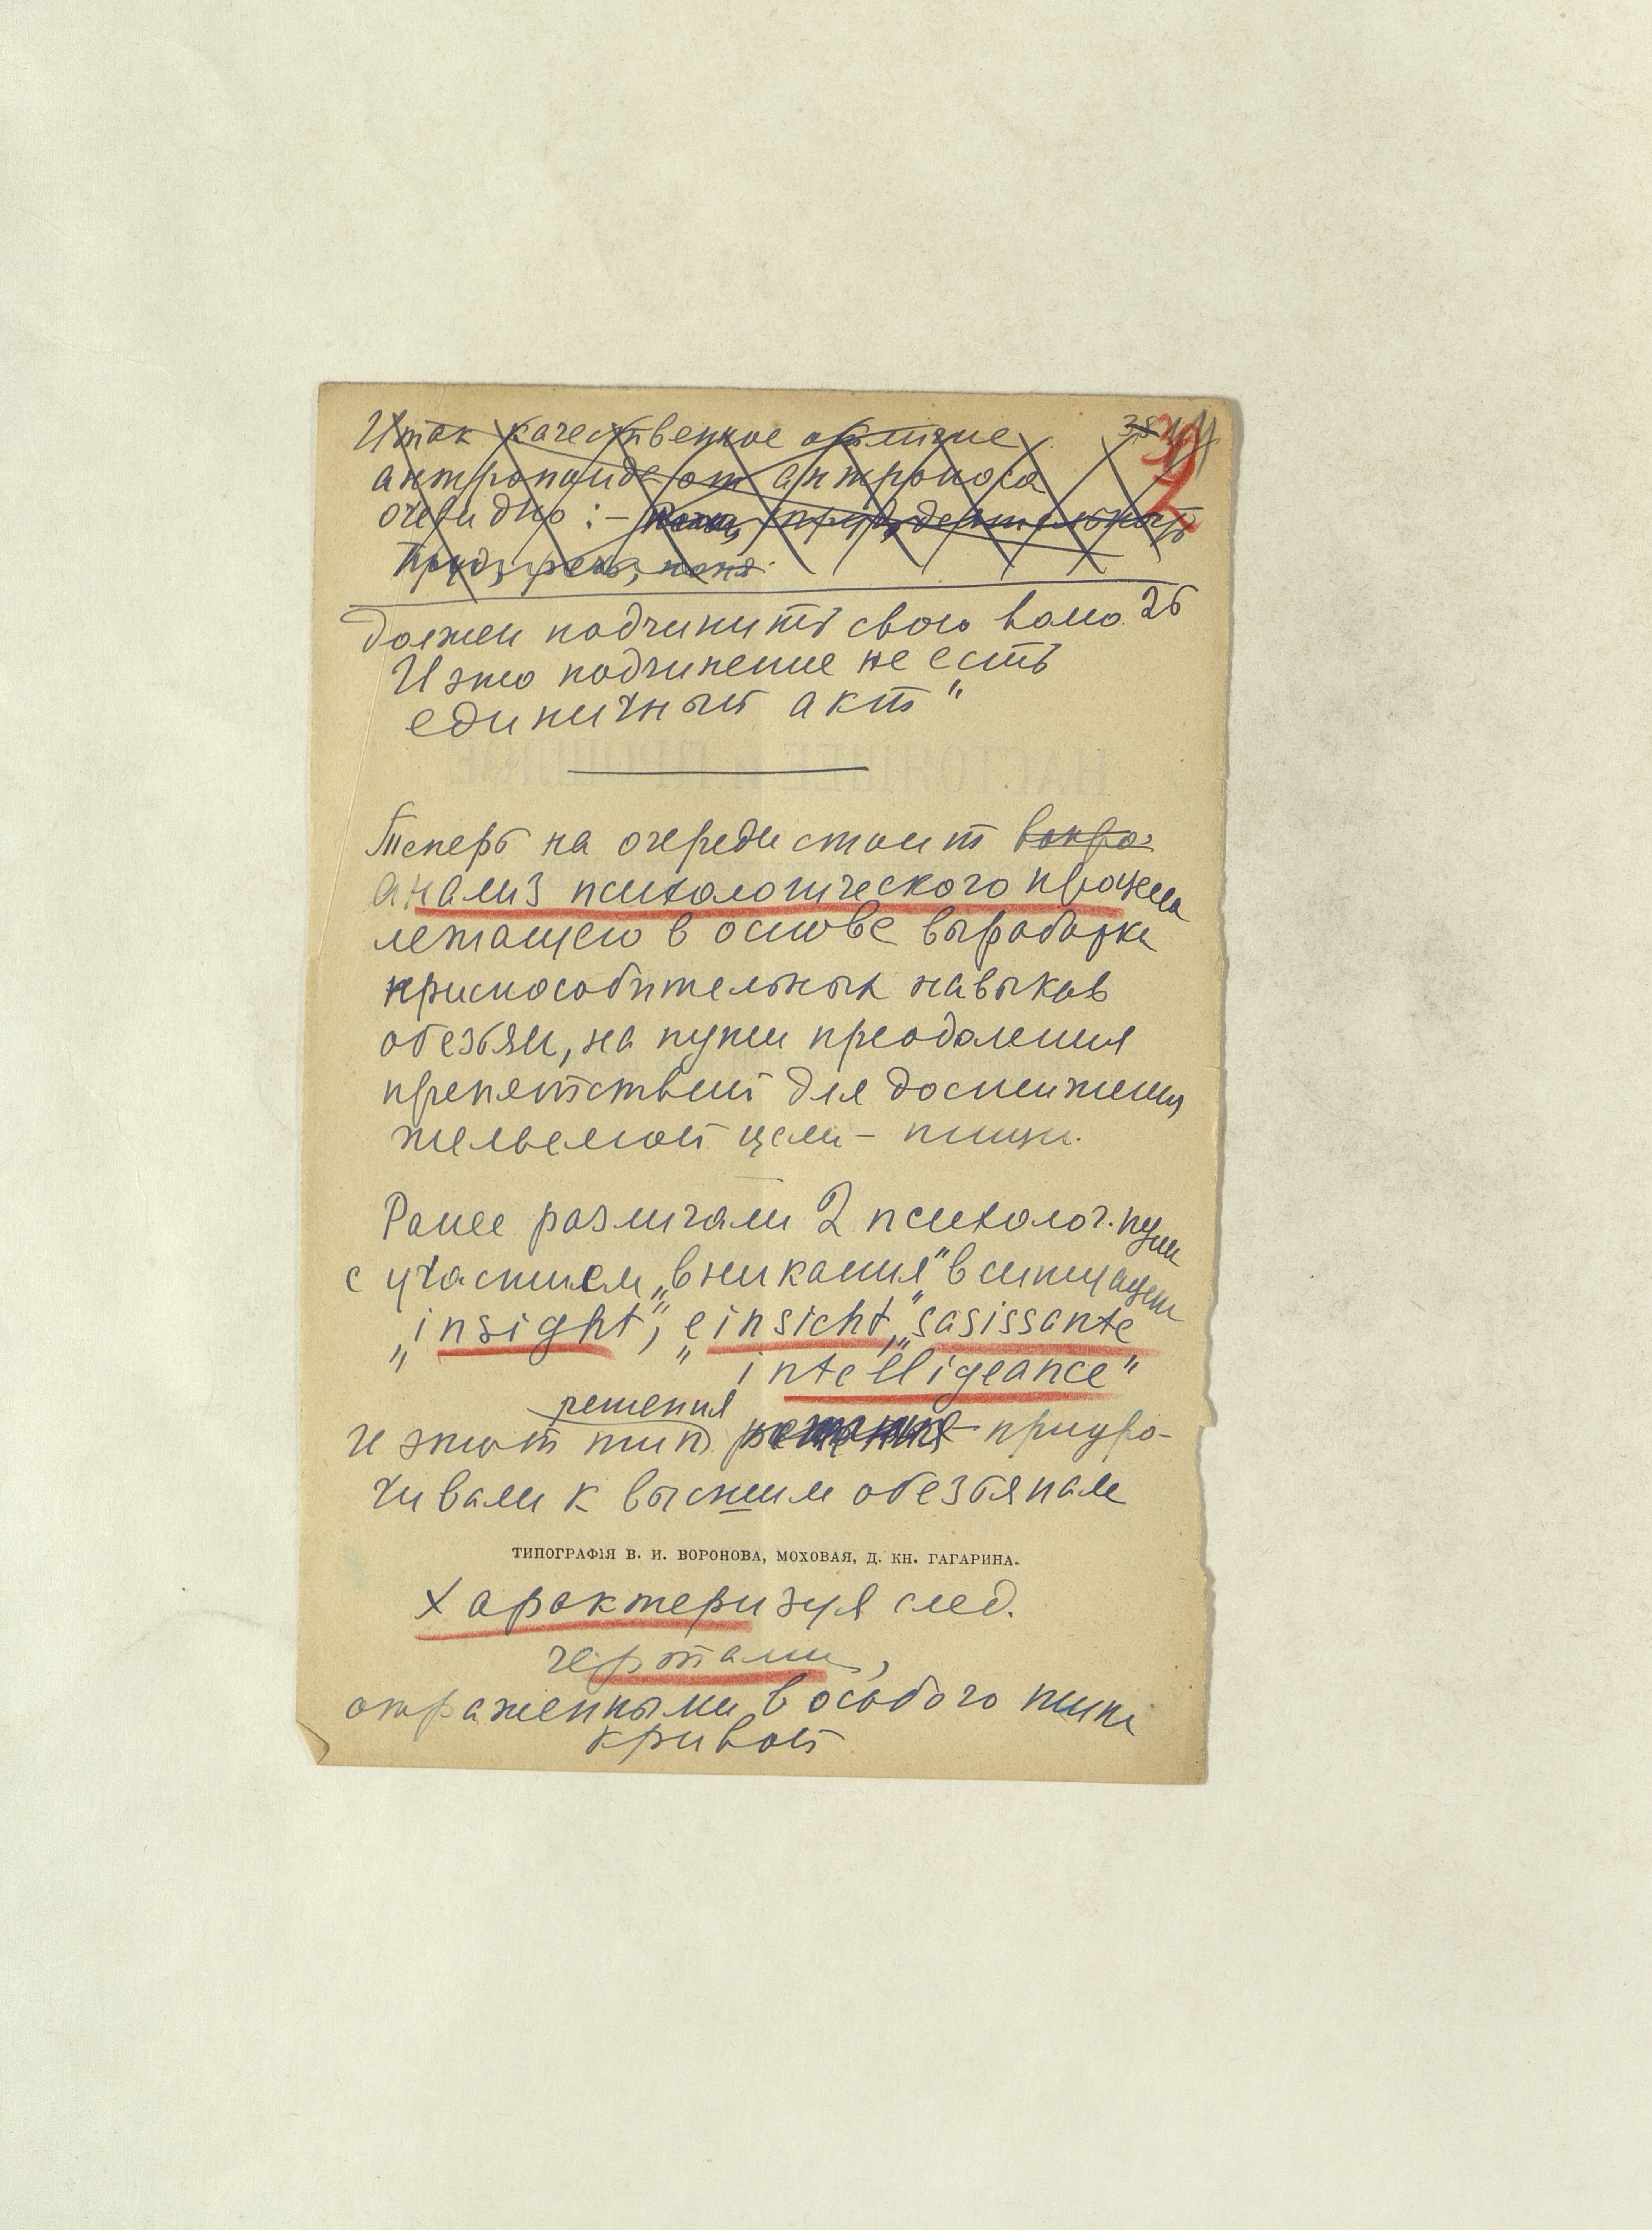 Итак качественное отличие 38
антропоида от антропоса 32
очевидно: –
Труд, речь,
должен подчинить свою волю. 26
И это подчинение не есть
единичный акт"
Теперь на очереди стоит вопро-
анализ психологического процесса
лежащего в основе выработки
приспособительных навыков
обезьян, на пути преодоления
препятствий для достижения
желаемой цели – пищи.
Ранее различали 2 психолог. пути
с участием „вникания" в ситуации
„insight", „einsicht", „sasissante
intelligeance"
решения
и этот тип приуро-
чивали к высшим обезьянам
ТИПОГРАФІЯ В. И. ВОРОНОВА, МОХОВАЯ, Д. КН. ГАГАРИНА.
Характеризуя след.
чертами,
отраженными в особого типа
кривой